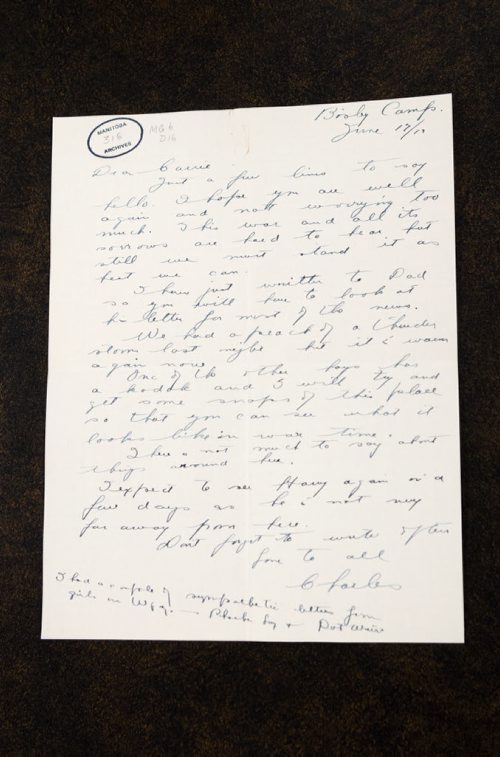 MANITOBA
316
ARCHIVES
MG 6
D16
Bisley Camp.
June 17/17
Dear Carrie
Just a few lines to say
hello. I hope you are well
again and not worrying too
much. This war and all its
sorrows are hard to bear but
still we must stand it as
best we can.
I have just written to Dad
so you will have to look at
his letter for most of the news.
We had a peach of a thunder
storm last night but it is warm
again now.
One of the other boys has
a kodak and I will try and
get some snaps of this palace
so that you can see what it
looks like in war time.
There is not much to say about
things around here.
I expect to see Harry again in a
few days as he is not very
far away from here.
Dont forget to write often
Love to all
Charles
I had a couple of sympathetic letters from
girls in Wpg. Phoebe &  Dot